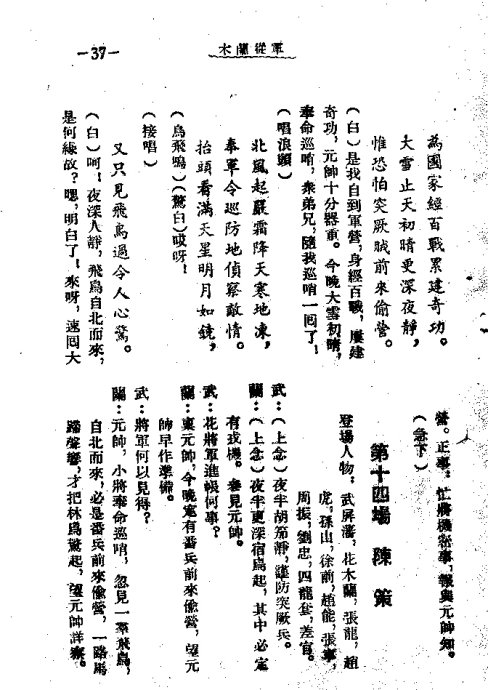 木蘭從軍
—37—
為國家經百戰累建奇功。
大雪止天初晴更深夜靜，
惟恐怕突厥賊前來偷營。
（白）是我自到軍營，身經百戰，屢建
奇功，元帥十分器重。今晚大雪初晴，
奉命巡哨，衆弟兄，隨我巡哨一囘了！
（唱浪頭）
北風起嚴霜降天寒地凍，
奉軍令巡防地偵察敵情。
抬頭看滿天星明月如鏡，
（鳥飛鳴）（驚白）哎呀！
（接唱）
又只見飛鳥過令人心驚。
（白）呵！夜深人靜，飛鳥自北而來，
是何緣故？嗯，明白了！來呀，速囘大
營。正事：忙將機密事，報與元帥知。
（急下）
第十四場 陳策
登場人物：武屏藩，花木蘭，張龍，趙
虎，孫山，徐前，趙能，張事，
周振，劉忠，四龍套，差官。
武：（上念）夜半胡笳靜，謹防突厥兵。
蘭：（上念）夜半更深宿鳥起，其中必定
有戎機。參見元帥。
武：花將軍進帳何事？
蘭：稟元帥，今晚定有番兵前來偷營，望元
帥早作準備。
武：將軍何以見得？
蘭：元帥，小將奉命巡哨，忽見一羣飛鳥，
自北而來，必是番兵前來偷營，一路馬
蹄聲響，才把林鳥驚起，望元帥詳察。